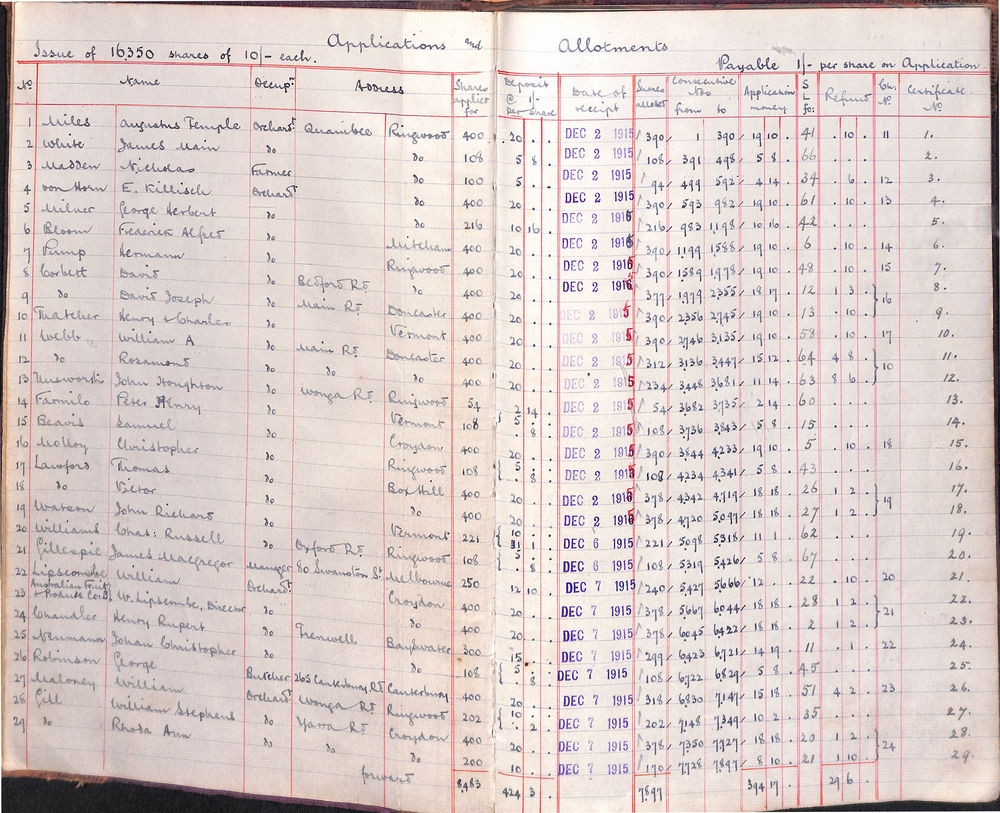 Applications and Allotments
Issue of 16350 shares of 10/- each. Payable 1/- per share on Application
No Name Occupn. Address Shares applied for Deposit @ 1/- per share Date of receipt Shares allott Consecutive Nos from to Application money S L fo: Refund Ch. No Certificate No
1 Miles Augustus Temple Orchardt Quambee Ringwood 400 20 . . DEC 2 1915 390 1 390 19 10 . 41 . 10 . 11 1.
2 White James Main do do 108 5 8 . DEC 2 1915 108 391 498 5 8 . 66 . . . 2.
3 Madden Nicholas Farmer do 100 5 . . DEC 2 1915 94 499 592 4 14 . 34 . 6 . 12 3.
4 von Horn E. Killisch Orchardt do 400 20 . . DEC 2 1915 390 593 982 19 10 . 61 . 10 . 13 4.
5 Milner George Herbert do do 216 10 16 . DEC 2 1915 216 983 1,198 10 16 . 42 . . . 5.
6 Bloom Frederick Alfred do Mitcham 400 20 . . DEC 2 1915 390 1,199 1,588 19 10 . 6 . 10 . 14 6.
7 Pump Hermann do Ringwood 400 20 . . DEC 2 1915 390 1589 1,978 19 10 . 48 . 10 . 15 7.
8 Corbett David do Bedford Rd. do 400 20 . . DEC 2 1915 377 1979 2355 18 17 . 12 1 3 . } 16 8.
9 do David Joseph do Main Rd. Doncaster 400 20 . . DEC 2 1915 390 2356 2,745 19 10 . 13 . 10 . 9.
10 Thatcher Henry & Charles do Vermont 400 20 . . DEC 2 1915 390 2746 3,135 19 10 . 58 . 10 . 17 10.
11 Webb William A do Main Rd. Doncaster 400 20 . . DEC 2 1915 312 3,136 3,447 15 12 . 64 4 8 . } 10 11.
12 do Rosamond do do do 400 20 . . DEC 2 1915 234 3,448 3,681 11 14 . 63 8 6 . 12.
13 Unsworth John Houghton do Wonga Rd. Ringwood 54 2 14 . DEC 2 1915 54 3682 3,735 2 14 . 60 . . . 13.
14 Farmilo Peter Henry do Vermont 108 { 5 . . . 8 . DEC 2 1915 108 3,736 3,843 5 8 . 15 . . . 14.
15 Beavis Samuel do Croydon 400 20 . . DEC 2 1915 390 3,844 4,233 19 10 . 5 . 10 . 18 15.
16 Molloy Christopher do Ringwood 108 { 5 . . . 8 . DEC 2 1915 108 4234 4,341 5 8 . 43 . . . 16.
17 Lawford Thomas do Box Hill 400 20 . . DEC 2 1915 378 4,342 4,719 18 18 . 26 1 2 . } 19 17.
18 do Victor do do 400 20 . . DEC 2 1915 378 4,720 5,097 18 18 . 27 1 2 . 18.
19 Watson John Richard do Vermont 221 { 10 . . 1 1 . DEC 6 1915 221 5,098 5,318 11 1 . 62 . . . 19.
20 Williams Chas. Russell do Oxford Rd. Ringwood 108 { 5 . . . 8 . DEC 6 1915 108 5,319 5,426 5 8 . 67 . . . 20.
21 Gillespie James Macgregor Manager 80 Swanston St. Melbourne 250 12 10 . DEC 7 1915 240 5,427 5,666 12 . . 22 . 10 . 20 21.
22 Lipscombe William Orchardt Croydon 400 20 . . DEC 7 1915 378 5,667 6,044 18 18 . 28 1 2 . } 21 22.
23 Australian Fruit & Produce Co Ld W. Lipscombe, Director do do 400 20 . . DEC 7 1915 378 6,045 6,422 18 18 . 2 1 2 . 23.
24 Chandler Henry Rupert do Bayswater 300 15 . . DEC 7 1915 299 6,423 6,721 14 19 . 11 . 1 . 22 24.
25 Neumann Johan Christopher do do 108 { 5 . . . 8 . DEC 7 1915 108 6,722 6,829 5 8 . 45 . . . 25.
26 Robinson George Butcher 265 Canterbury Rd Canterbury 400 20 . . DEC 7 1915 318 6,830 7,147 15 18 . 51 4 2 . 23 26.
27 Maloney William Orchardt Wonga Rd. Ringwood 202 { 10 . . . 2 . DEC 7 1915 202 7,148 7,349 10 2 . 35 . . . 27.
28 Gill William Stephens do Yarra Rd. Croydon 400 20 . . DEC 7 1915 378 7,350 7,727 18 18 . 20 1 2 . } 24 28.
29 do Rhoda Ann do do do 200 10 . . DEC 7 1915 170 7,728 7,897 8 10 . 21 1 10 . 29.
forward 8,483 424 3 . 7,897 394 17 . 29 6 .